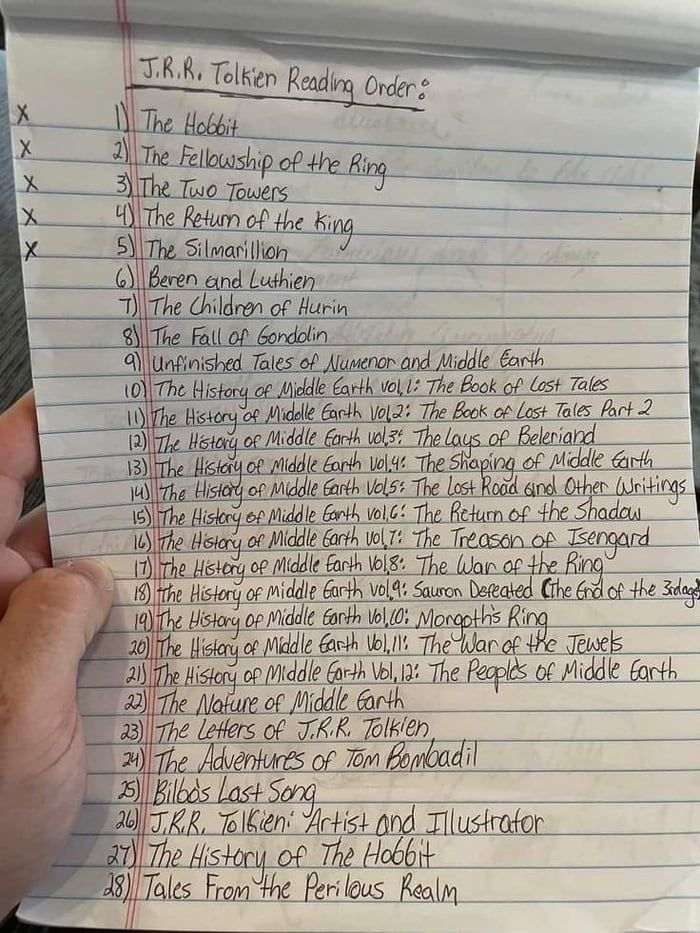 J.R.R. Tolkien Reading Order:
X 1) The Hobbit
X 2) The Fellowship of the Ring
X 3) The Two Towers
X 4) The Return of the King
X 5) The Silmarillion
6) Beren and Luthien
7) The Children of Hurin
8) The Fall of Gondolin
9) Unfinished Tales of Numenor and Middle Earth
10) The History of Middle Earth vol,1: The Book of Lost Tales
11) The History of Middle Earth Vol,2: The Book of Lost Tales Part 2
12) The History of Middle Earth vol,3: The Lays of Beleriand
13) The History of Middle Earth vol,4: The Shaping of Middle Earth
14) The History of Middle Earth Vol,5: The Lost Road and Other Writings
15) The History of Middle Earth vol,6: The Return of the Shadow
16) The History of Middle Earth Vol,7: The Treason of Isengard
17) The History of Middle Earth Vol,8: The War of the Ring
18) The History of Middle Earth vol,9: Sauron Defeated (The End of the 3rd age)
19) The History of Middle Earth Vol,10: Morgoth's Ring
20) The History of Middle Earth Vol,11: The War of the Jewels
21) The History of Middle Earth Vol,12: The People's of Middle Earth
22) The Nature of Middle Earth
23) The Letters of J.R.R. Tolkien
24) The Adventures of Tom Bombadil
25) Bilbo's Last Song
26) J.R.R. Tolkien: Artist and Illustrator
27) The History of The Hobbit
28) Tales From the Perilous Realm